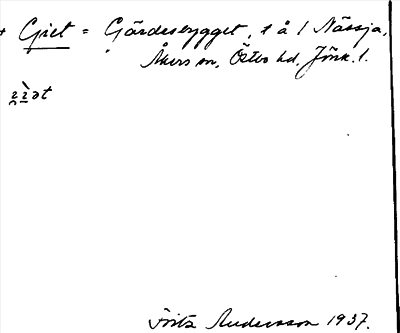 + Giet = Gärdesrygget, 1 å 1 Nässja,
Åkers sn, Östbo hd, Jönk. l.
Fritz Andersson 1937.